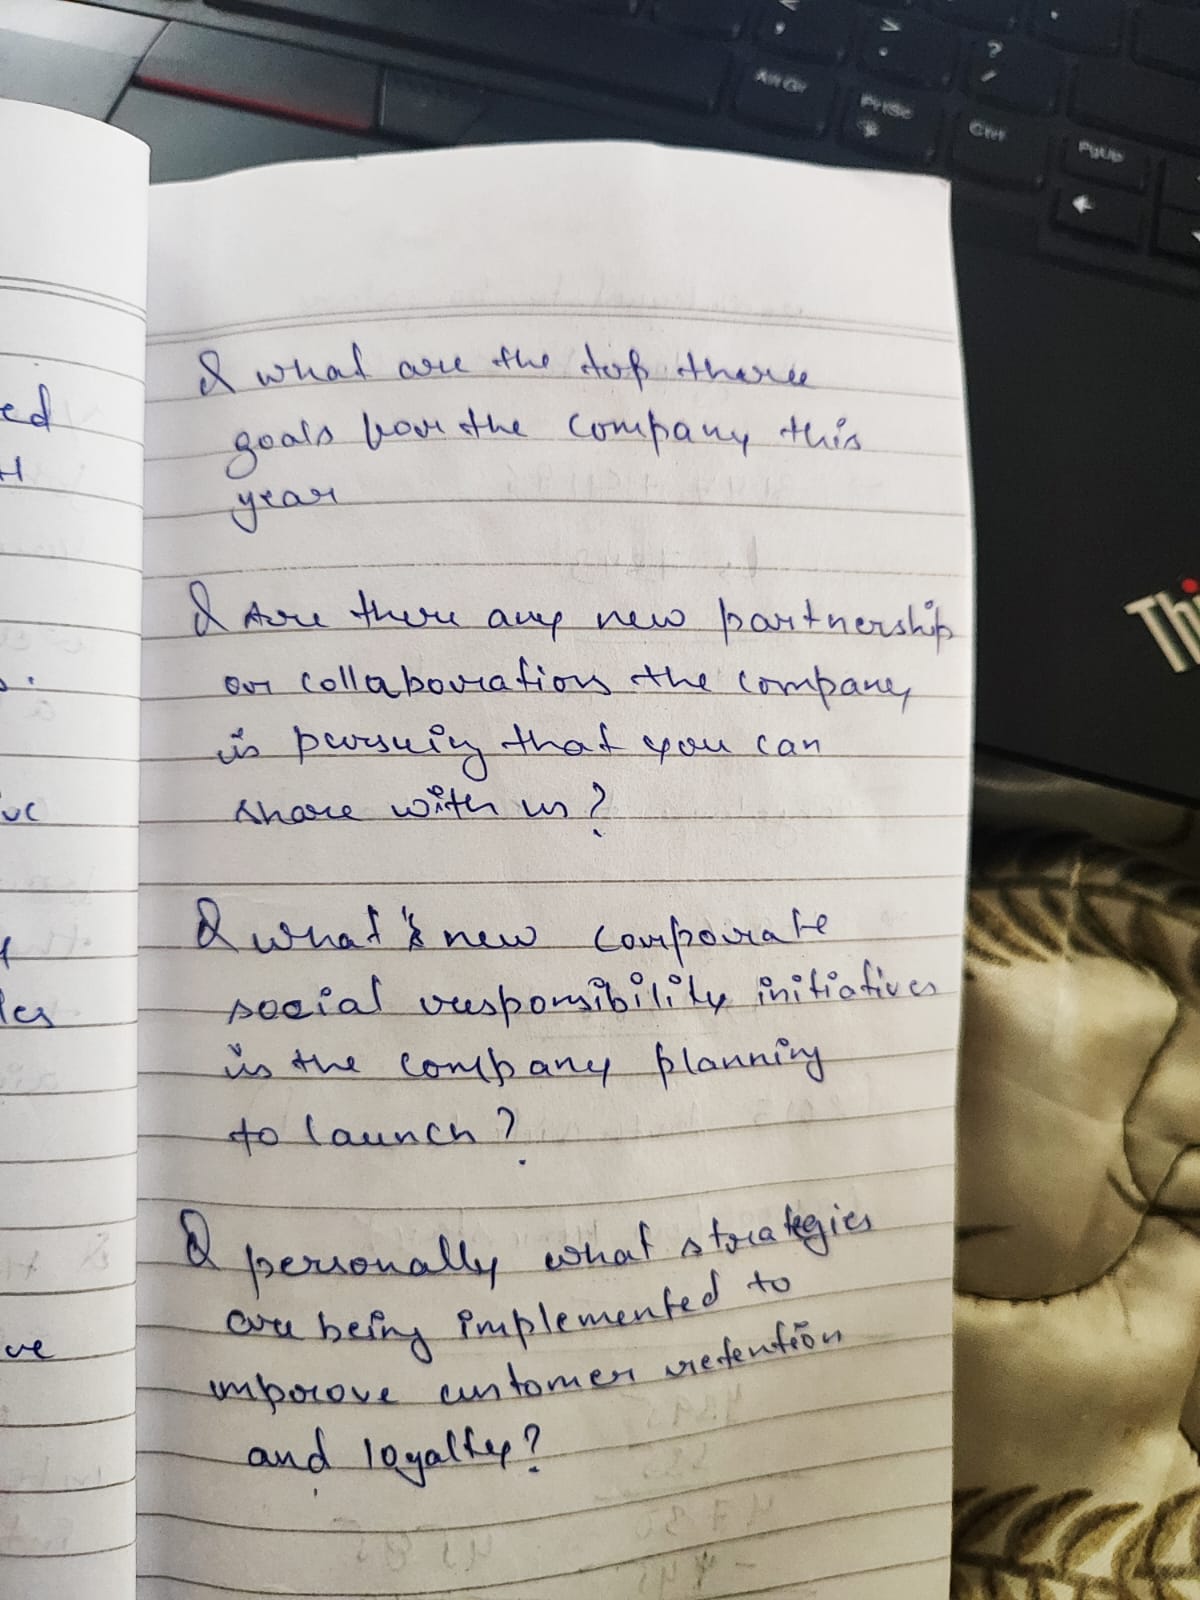 Q what are the top three
goals for the company this
year
Q Are there any new partnership
or collaborations the company
is pursuing that you can
share with us?
Q what's new corporate
social responsibility initiatives
is the company planning
to launch?
Q personally what strategies
are being implemented to
improve customer retention
and loyalty?
ed
les
ve
Alt Gr
PrtSc
Ctrl
PgUp
?
/
Thi